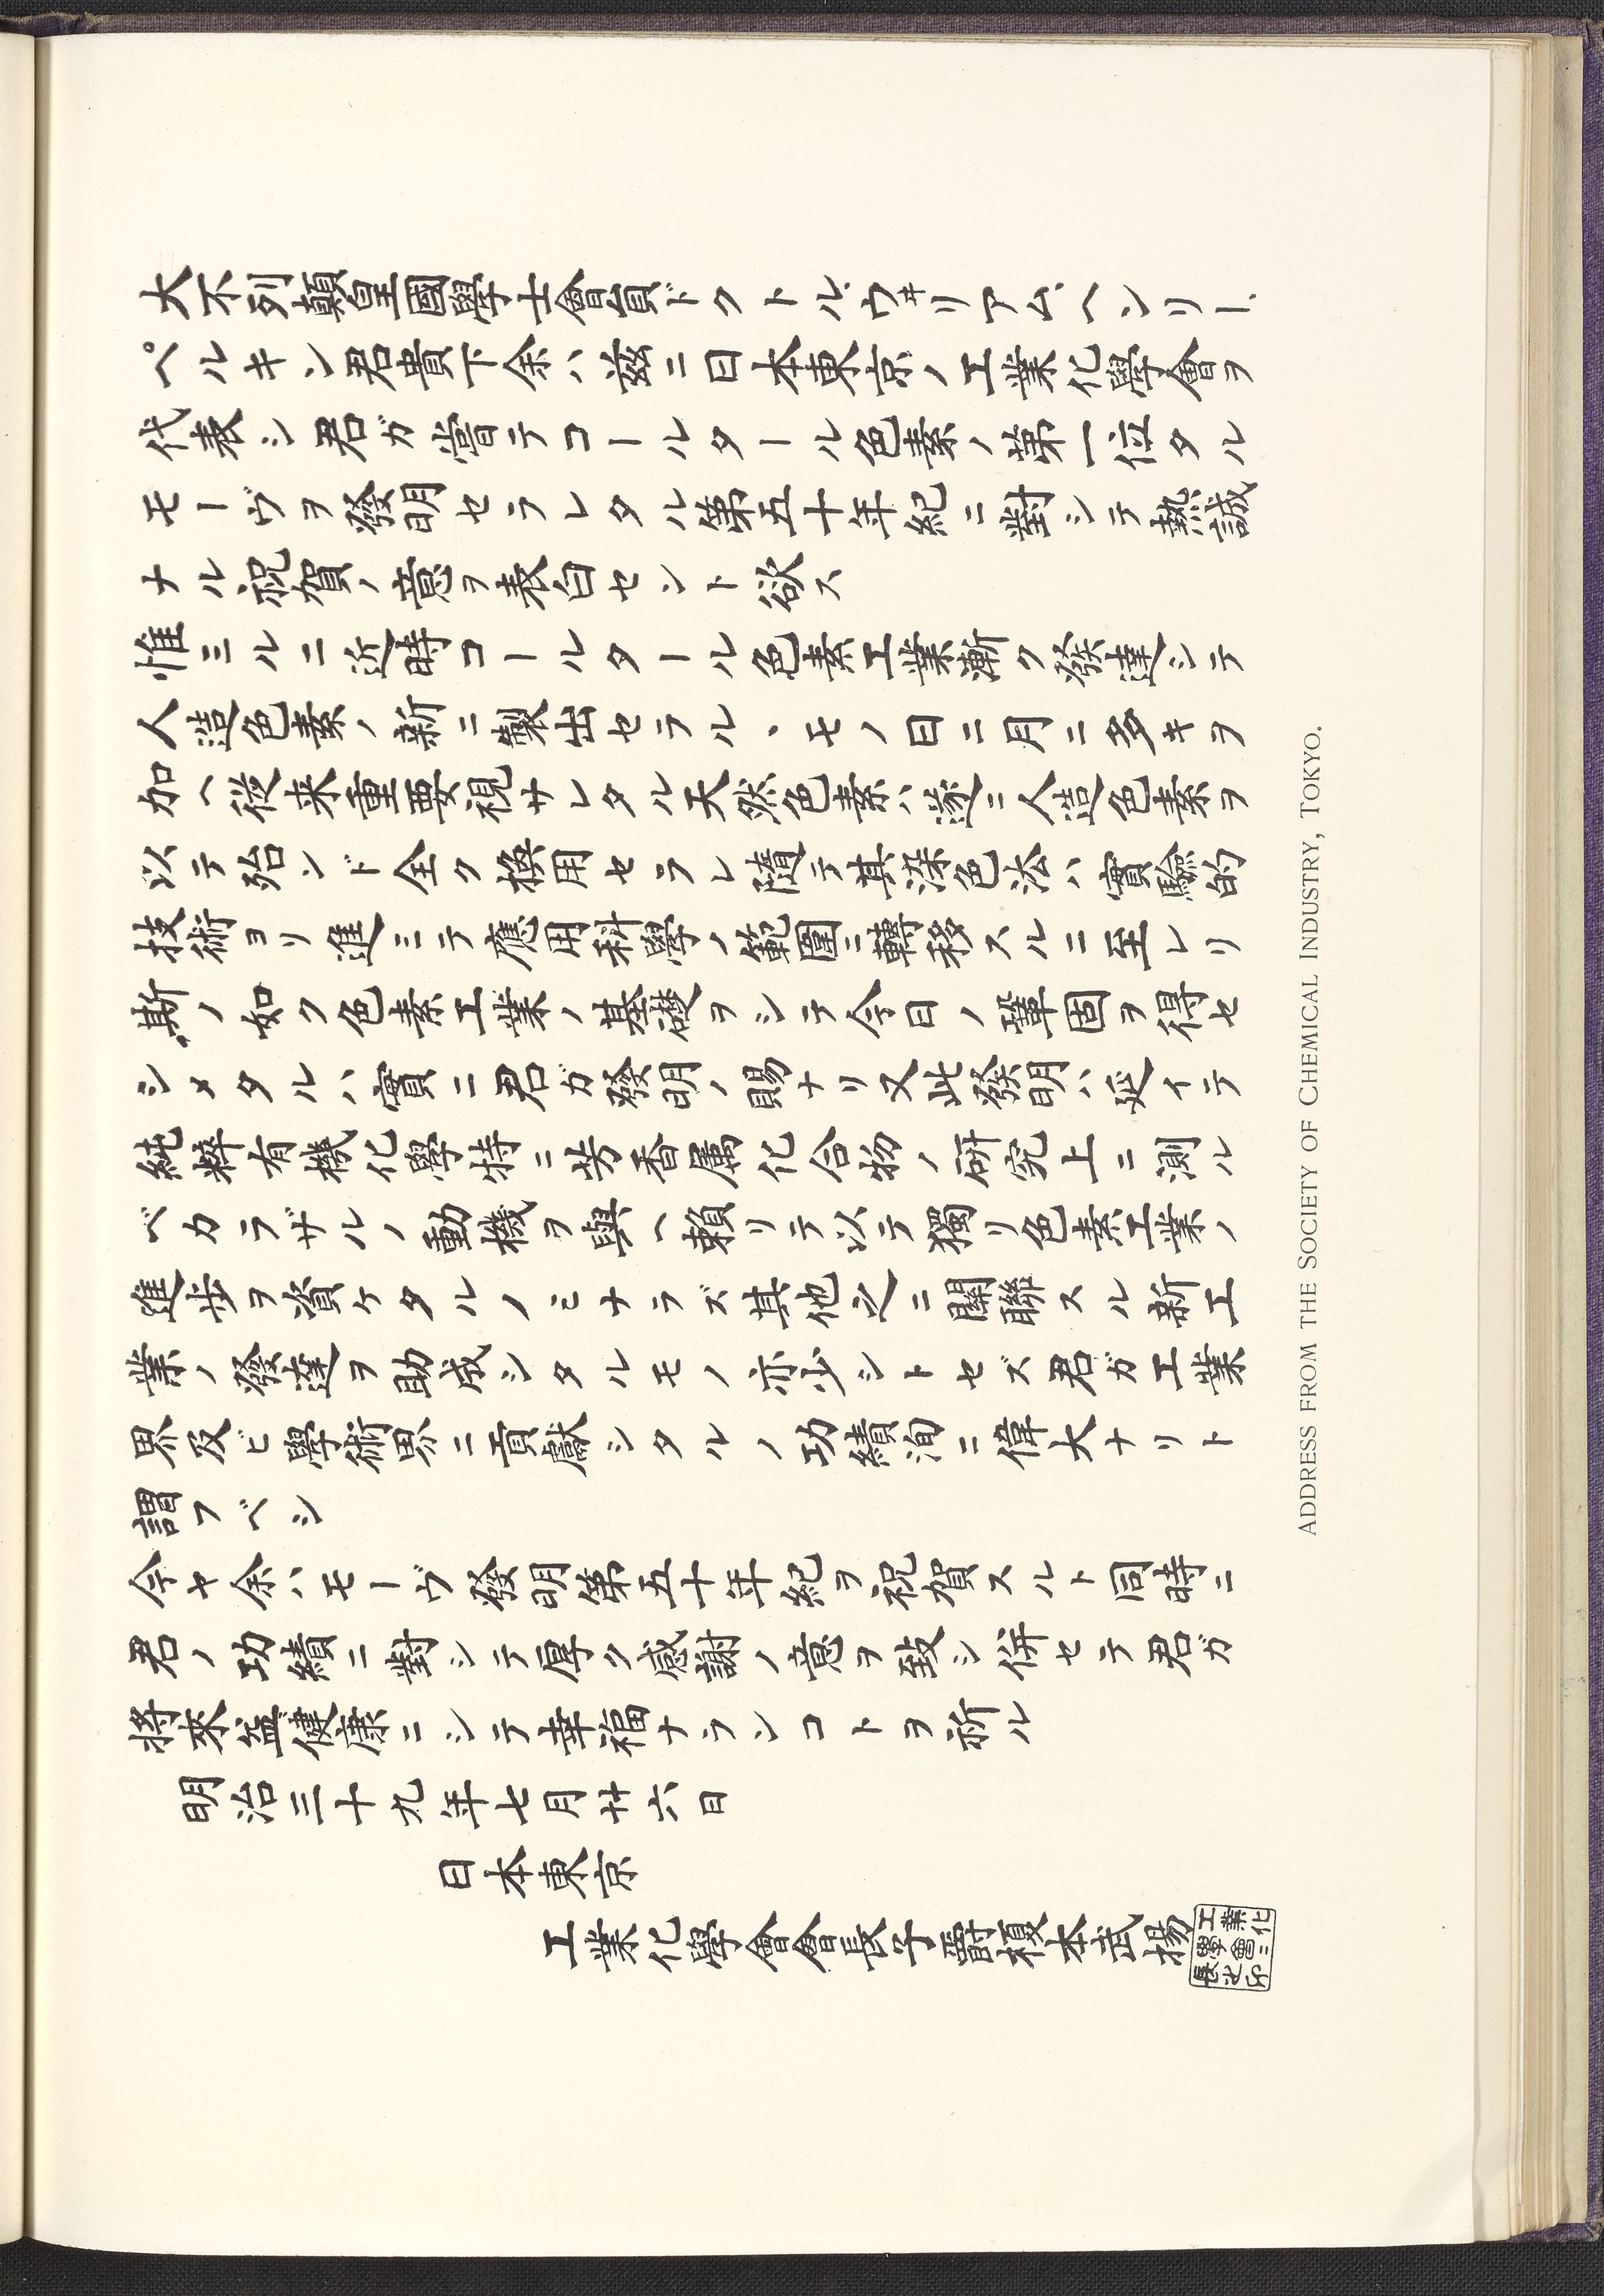 大不列顛皇國學士會員ドクトル、ウヰリアム、ヘンリー、
ペルキン君貴下余ハ玆ニ日本東京ノ工業化學會ヲ
代表シ君ガ嘗テコールタール色素ノ第一位タル
モーヴヲ發明セラレタル第五十年紀ニ對シテ熱誠
ナル祝賀ノ意ヲ表白セント欲ス
惟ミルニ近時コールタール色素工業漸ク發達シテ
人造色素ノ新ニ製出セラルヽモノ日ニ月ニ多キヲ
加ヘ從来重要視サレタル天然色素ハ遂ニ人造色素ヲ
以テ殆ンド全ク換用セラレ隨テ其染色法ハ實驗的
技術ヨリ進ミテ應用科學ノ範圍ニ轉移スルニ至レリ
斯ノ如ク色素工業ノ基礎ヲシテ今日ノ鞏固ヲ得セ
シメタルハ實ニ君ガ發明ノ賜ナリ又此發明ハ延イテ
純粹有機化學特ニ芳香属化合物ノ研究上ニ測ル
ベカラザルノ動機ヲ與ヘ賴リテ以テ獨リ色素工業ノ
進歩ヲ資ケタルノミナラズ其他之ニ關聯スル新工
業ノ發達ヲ助成シタルモノ亦少シトセズ君ガ工業
界及ビ學術界ニ貢獻シタルノ功績洵ニ偉大ナリト
謂フベシ
今ヤ余ハモーヴ發明第五十年紀ヲ祝賀スルト同時ニ
君ノ功績ニ對シテ厚ク感謝ノ意ヲ致シ併セテ君ガ
將來益健康ニシテ幸福ナランコトヲ祈ル
明治三十九年七月廿六日
日本東京
工業化學會會長子爵榎本武揚
工業化
學會會
長之印
ADDRESS FROM THE SOCIETY OF CHEMICAL INDUSTRY, TOKYO.